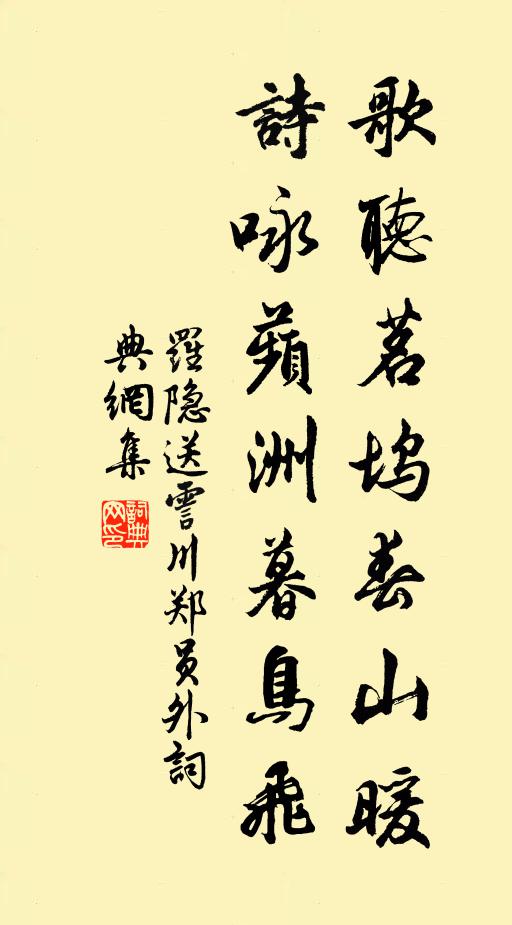 歌聽茗塢春山暖
詩咏蘋洲暮鳥飛
羅隐送霅川郑员外詞
典網集
詞典网印